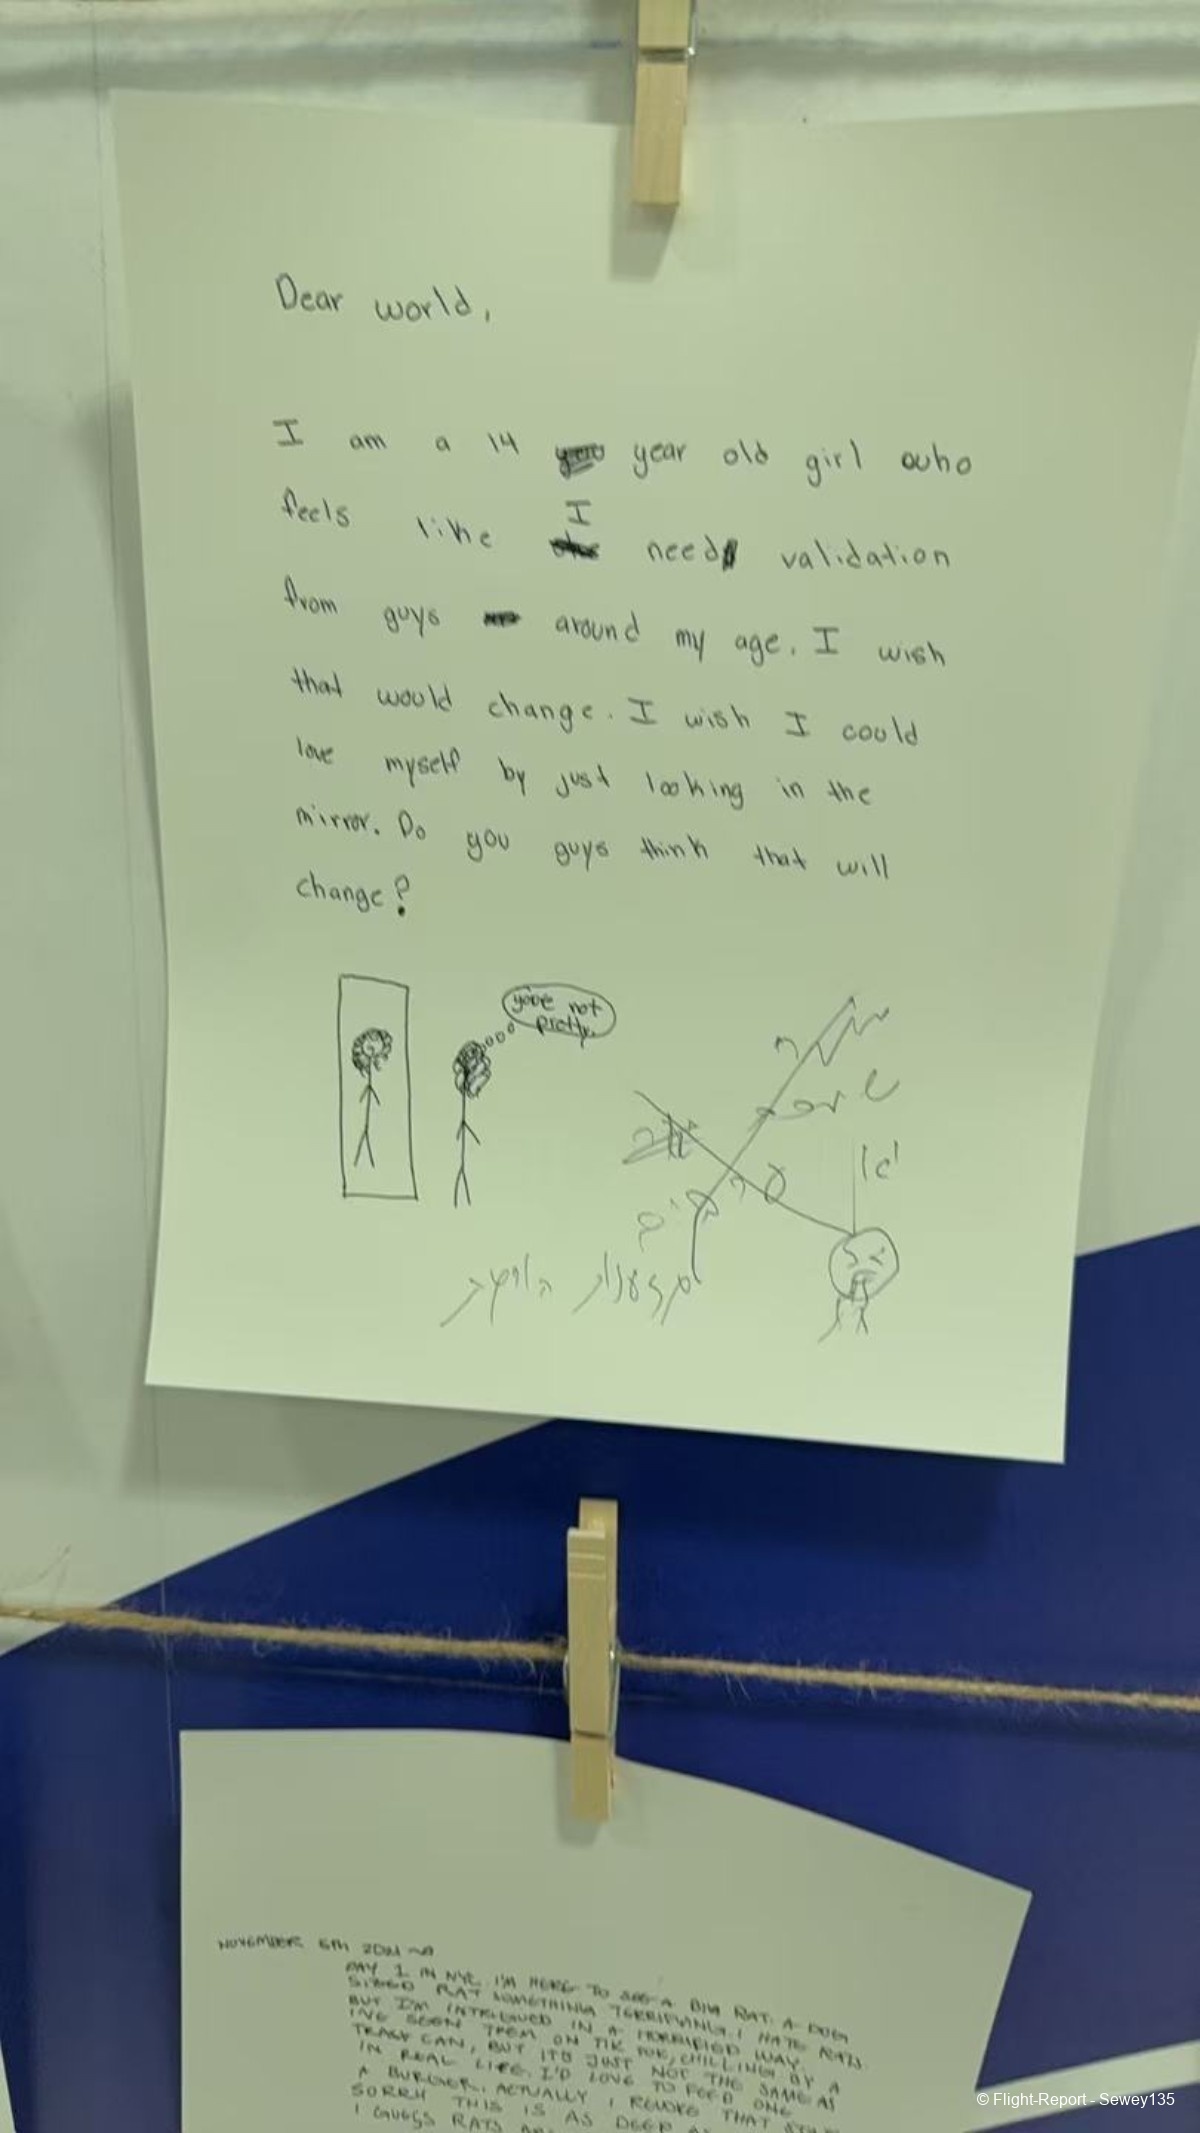 Dear world,
I am a 14 year old girl who
feels like I need validation
from guys around my age. I wish
that would change. I wish I could
love myself by just looking in the
mirror. Do you guys think that will
change?
you're not
pretty.
NOVEMBER 5TH 2021
DAY 1 IN NYC. I'M HERE TO SEE A BIG RAT. A DOG
SIZED RAT SOMETHING TERRIFYING. I HATE RATS
BUT I'M INTRIGUED IN A HORRIFIED WAY.
I'VE SEEN THEM ON TIK TOK, CHILLING BY A
TRASH CAN, BUT ITS JUST NOT THE SAME AS
IN REAL LIFE. I'D LOVE TO FEED ONE
A BURGER. ACTUALLY I REVOKE THAT
SORRY THIS IS AS DEEP
I GUESS RATS
© Flight-Report - Sewey135